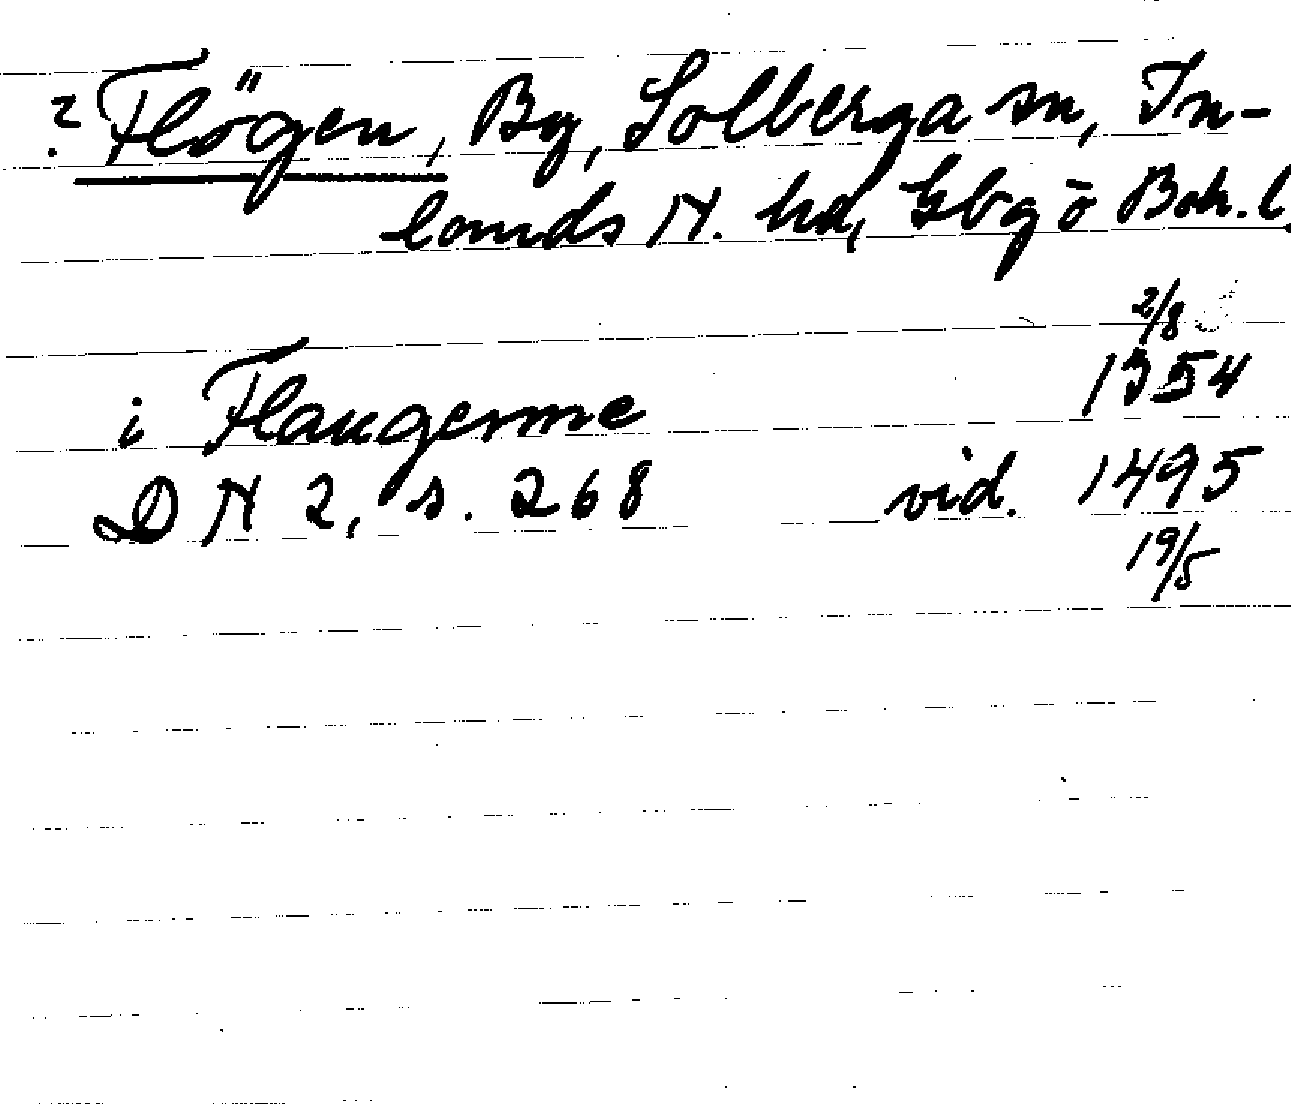 ? Flögen, By, Solberga sn, In-
lands N. hd, Gbg o Boh. l.
2/8
i Flaugenne 1354
DN 2, s. 268 vid. 1495
19/5